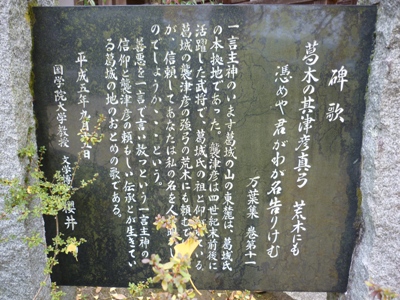 碑歌
葛木の其津彦真弓 荒木にも
憑めや君がわが名告りけむ
万葉集 巻第十一
一言主神のいます葛城の山の東麓は、葛城氏
の本拠地であった。襲津彦は四世紀末前後に
活躍した武将で、葛城氏の祖と仰がれている。
葛城の襲津彦の強弓の荒木にも頼むで
が信頼してあなたは私の名を人に
のでしょうか、という。
善悪を一言で言い放つという一言主神の
信仰と襲津彦の頼もしい伝承とが生きてい
る葛城の地のおとめの歌である。
平成五年九月 日
国学院大学教授 文学博士 桜井